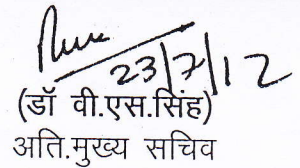 23/7/12
(डॉ वी.एस.सिंह)
अति.मुख्य सचिव